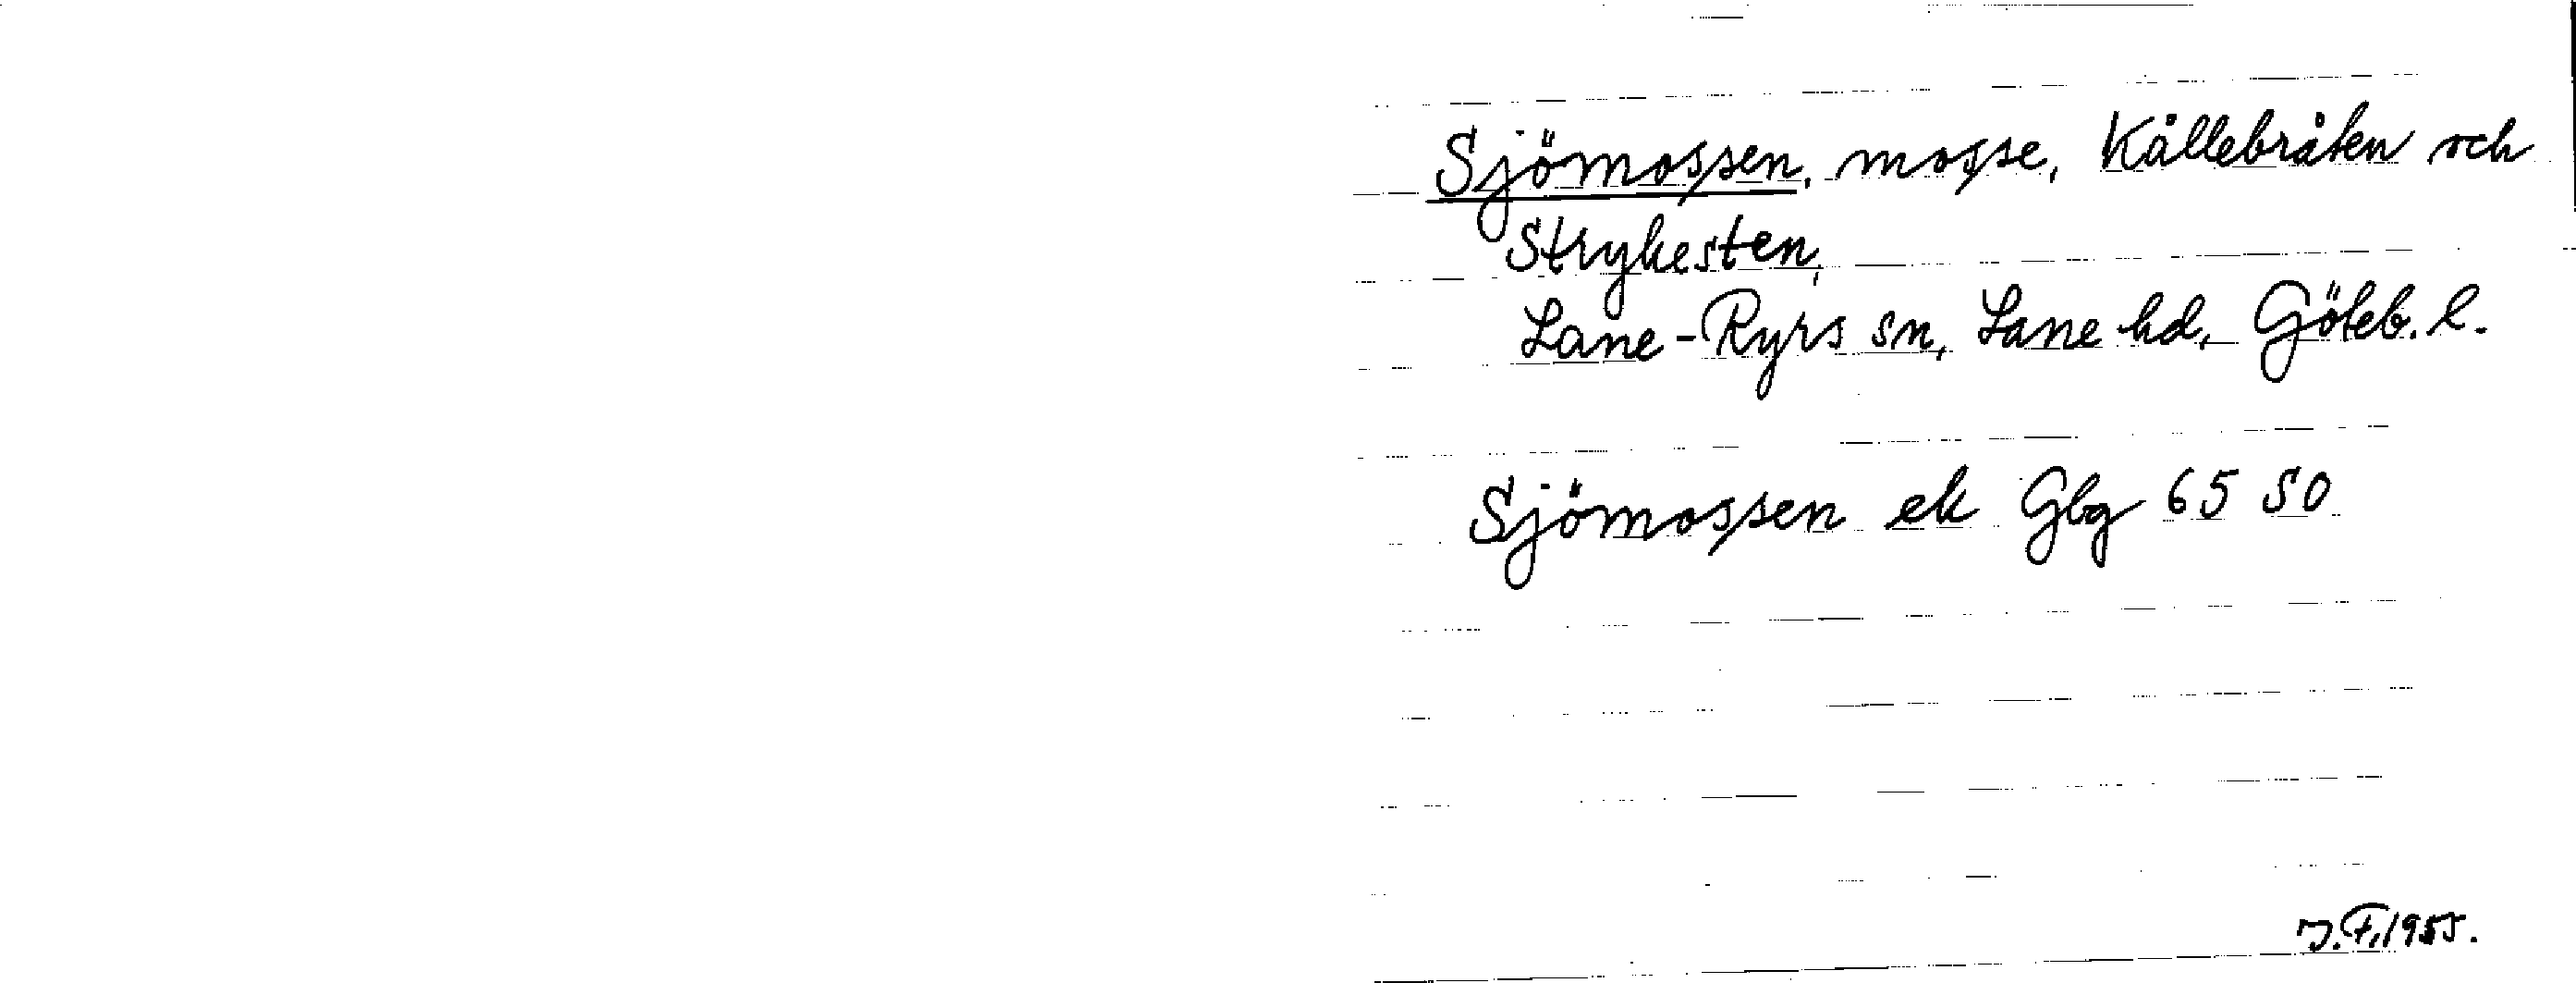 Sjömossen, mosse, Kållebråten och
Strykesten,
Lane-Ryrs sn, Lane hd, Göteb. l.
Sjömossen ek Gbg 65 SO
J.F. 1955.